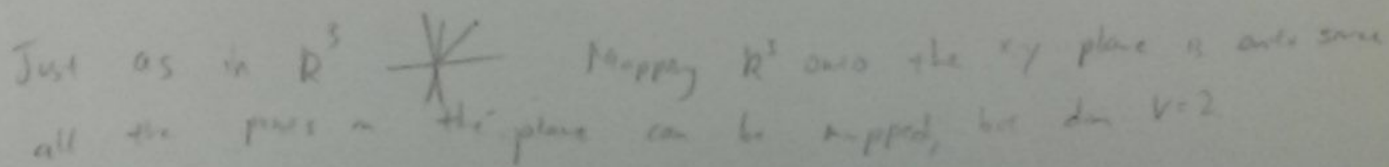 Just as in R³ Mapping R³ onto the xy plane is onto since
all the points in the plane can be mapped, but dim V=2